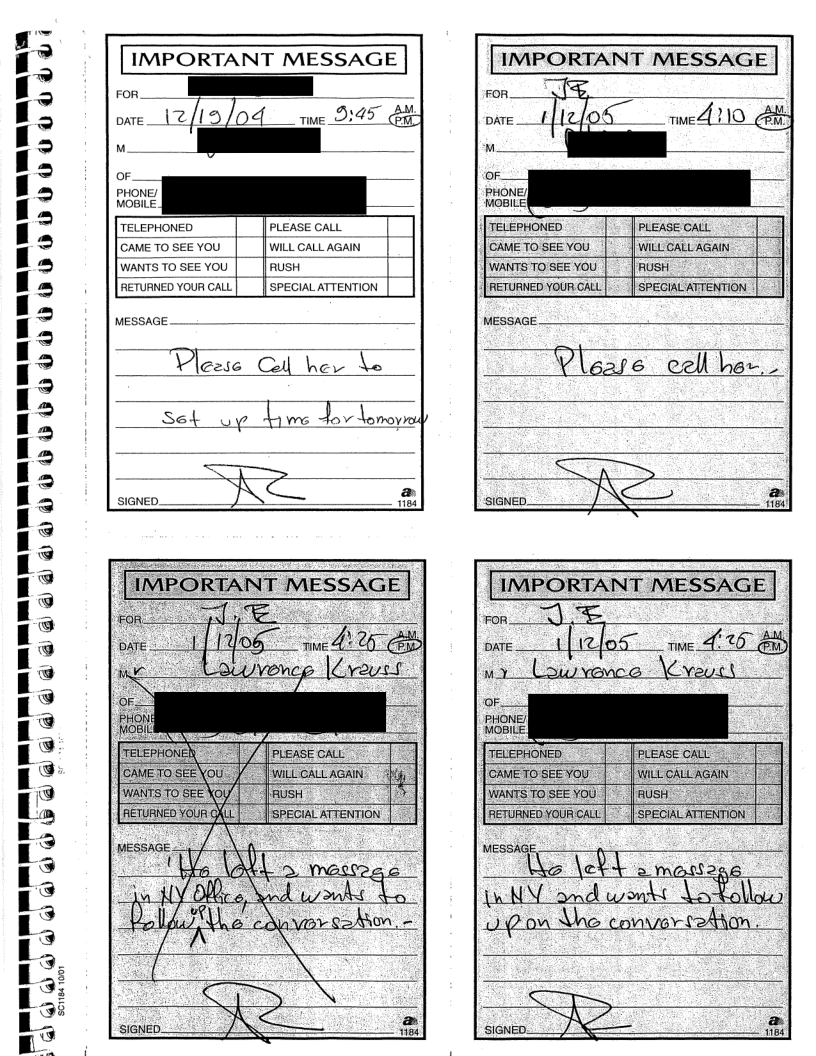 IMPORTANT MESSAGE
FOR
DATE 12/19/04 TIME 9:45 A.M. P.M.
M
OF
PHONE/
MOBILE
TELEPHONED PLEASE CALL
CAME TO SEE YOU WILL CALL AGAIN
WANTS TO SEE YOU RUSH
RETURNED YOUR CALL SPECIAL ATTENTION
MESSAGE
Please Call her to
set up time for tomorrow
SIGNED
1184
IMPORTANT MESSAGE
FOR J.E
DATE 1/12/05 TIME 4:10 A.M. P.M.
M
OF
PHONE/
MOBILE
TELEPHONED PLEASE CALL
CAME TO SEE YOU WILL CALL AGAIN
WANTS TO SEE YOU RUSH
RETURNED YOUR CALL SPECIAL ATTENTION
MESSAGE
Please call her.-
SIGNED
1184
IMPORTANT MESSAGE
FOR J.E
DATE 1/12/05 TIME 4:25 A.M. P.M.
Mr Lawrence Krauss
OF
PHONE
MOBILE
TELEPHONED PLEASE CALL
CAME TO SEE YOU WILL CALL AGAIN
WANTS TO SEE YOU RUSH
RETURNED YOUR CALL SPECIAL ATTENTION
MESSAGE
He left a message
in NY Office, and wants to
follow up the conversation.-
SIGNED
1184
IMPORTANT MESSAGE
FOR J.E
DATE 1/12/05 TIME 4:25 A.M. P.M.
Mr Lawrence Krauss
OF
PHONE/
MOBILE
TELEPHONED PLEASE CALL
CAME TO SEE YOU WILL CALL AGAIN
WANTS TO SEE YOU RUSH
RETURNED YOUR CALL SPECIAL ATTENTION
MESSAGE
He left a message
in NY and wants to follow
up on the conversation.
SIGNED
1184
SC1184 10/01